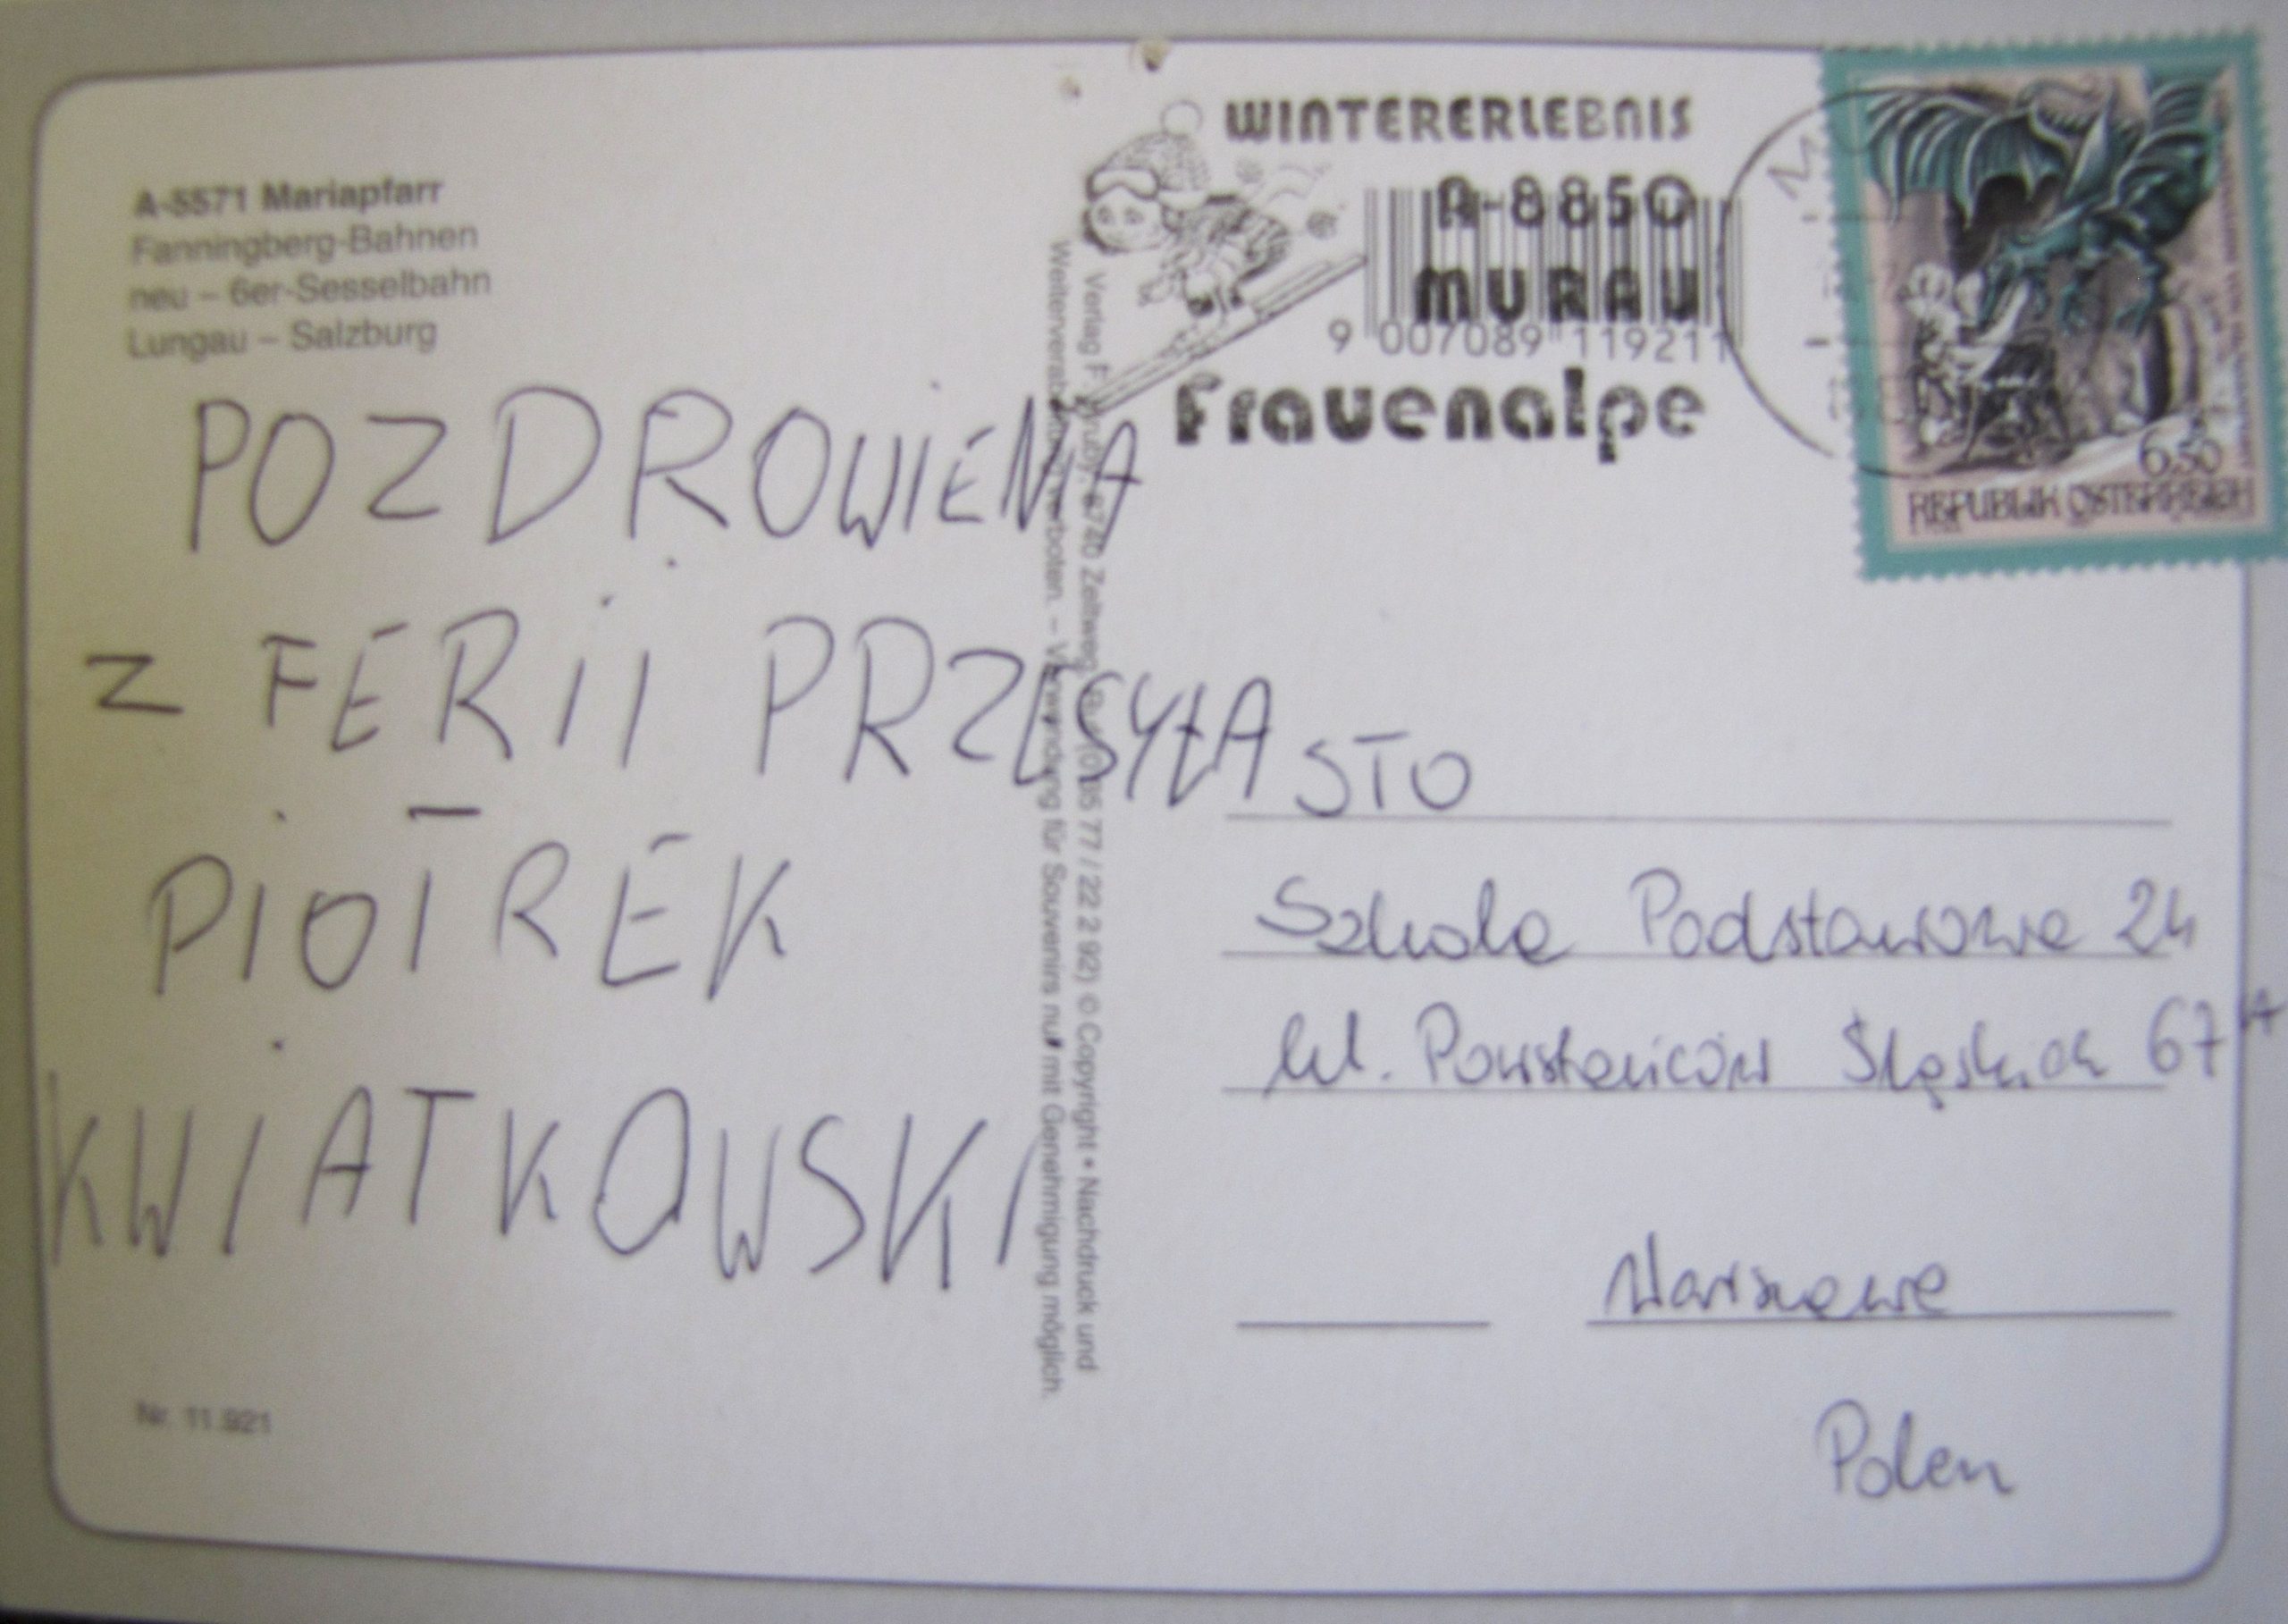 A-5571 Mariapfarr
Fanningberg-Bahnen
neu – 6er-Sesselbahn
Lungau – Salzburg
POZDROWIENA
Z FERII PRZESYŁA
PIOTREK
KWIATKOWSKI
Nr. 11.921
Verlag F. 8740 Zeltweg, 0 35 77 / 22 2 92) © Copyright • Nachdruck und
Weiterverarbeitung verboten. – Verwendung für Souvenirs nur mit Genehmigung möglich.
WINTERERLEBNIS
A-8850
MURAU
9 007089 119211
Frauenalpe
6,50
REPUBLIK ÖSTERREICH
STO
Szkoła Podstawowa 24
Ul. Powstańców Śląskich 67A
Warszawa
Polen